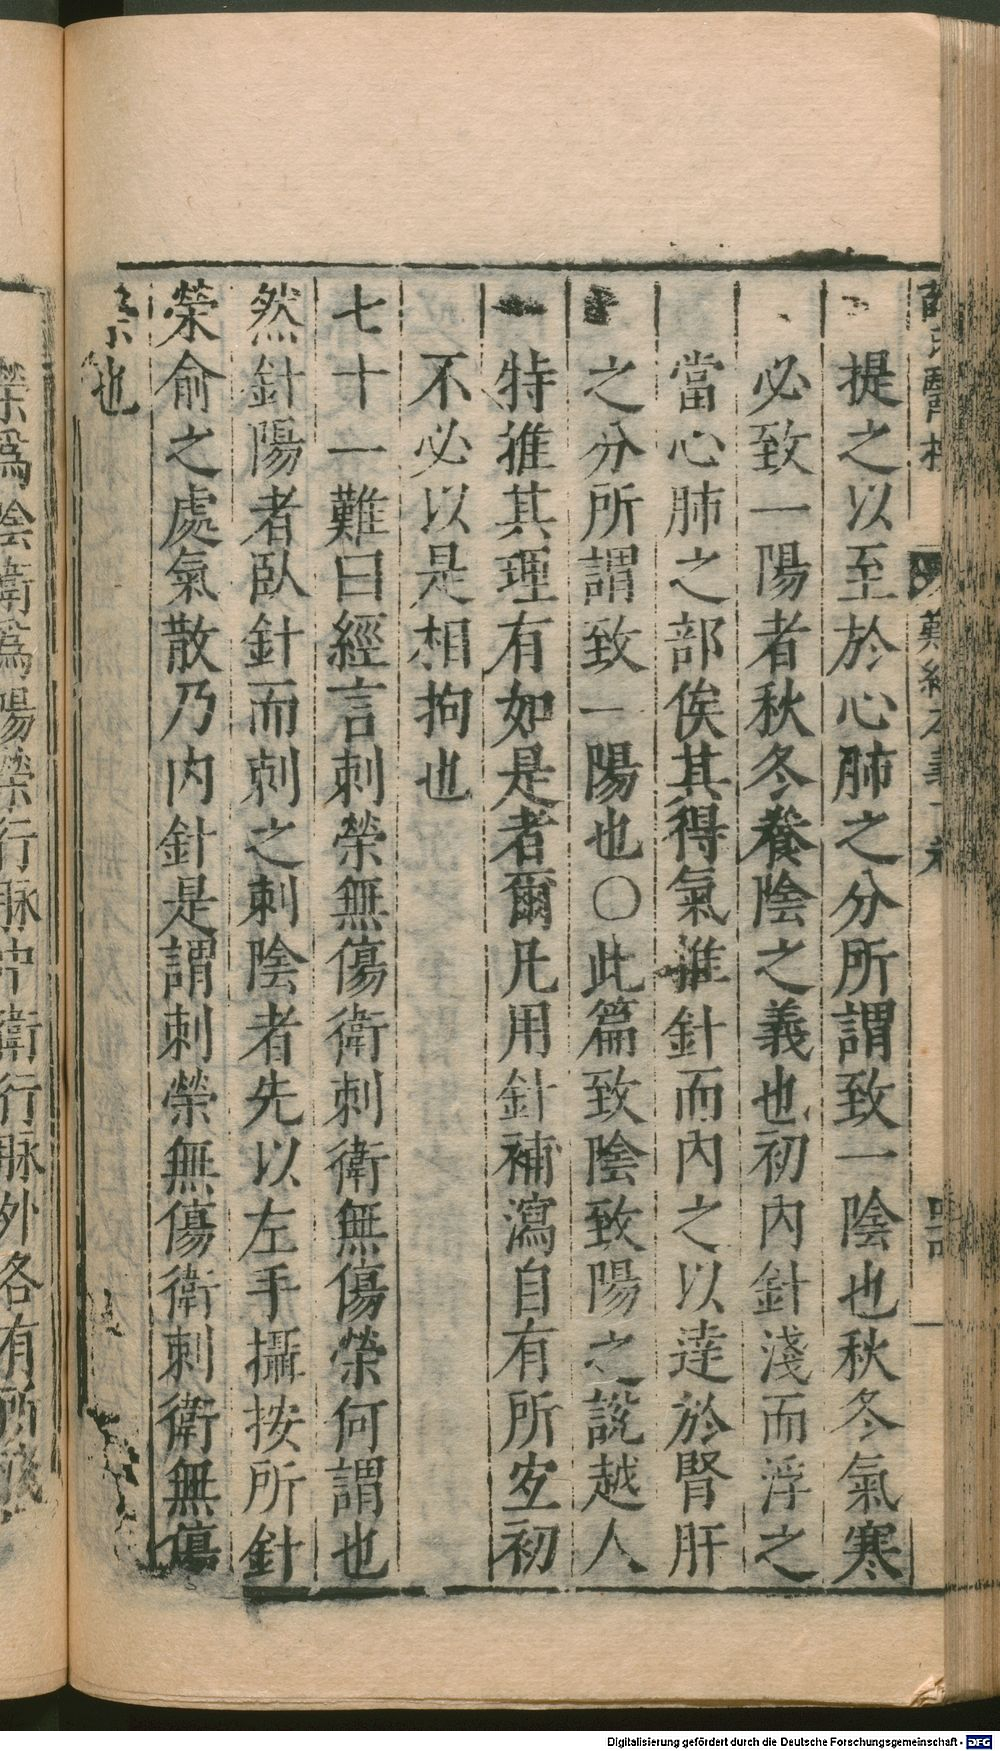 難經本義下卷
提之以至於心肺之分所謂致一陰也秋冬氣寒
必致一陽者秋冬養陰之義也初內針淺而浮之
當心肺之部俟其得氣推針而內之以達於腎肝
之分所謂致一陽也○此篇致陰致陽之說越人
特推其理有如是者爾凡用針補瀉自有所宜初
不必以是相拘也
七十一難曰經言刺榮無傷衛刺衛無傷榮何謂也
然針陽者臥針而刺之刺陰者先以左手攝按所針
榮俞之處氣散乃內針是謂刺榮無傷衛刺衛無傷
榮也
榮爲陰衛爲陽榮行脉中衛行脉外各有所
Digitalisierung gefördert durch die Deutsche Forschungsgemeinschaft - DFG